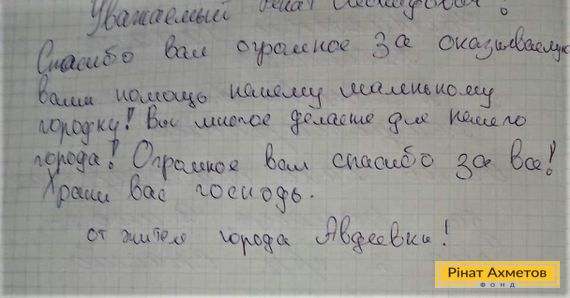 Уважаемый Ринат Леонидович!
Спасибо вам огромное за оказываемую
вами помощь нашему маленькому
городку! Вы многое делаете для нашего
города! Огромное вам спасибо за все!
Храни вас господь.
от жителя города Авдеевки!
Рінат Ахметов
ФОНД